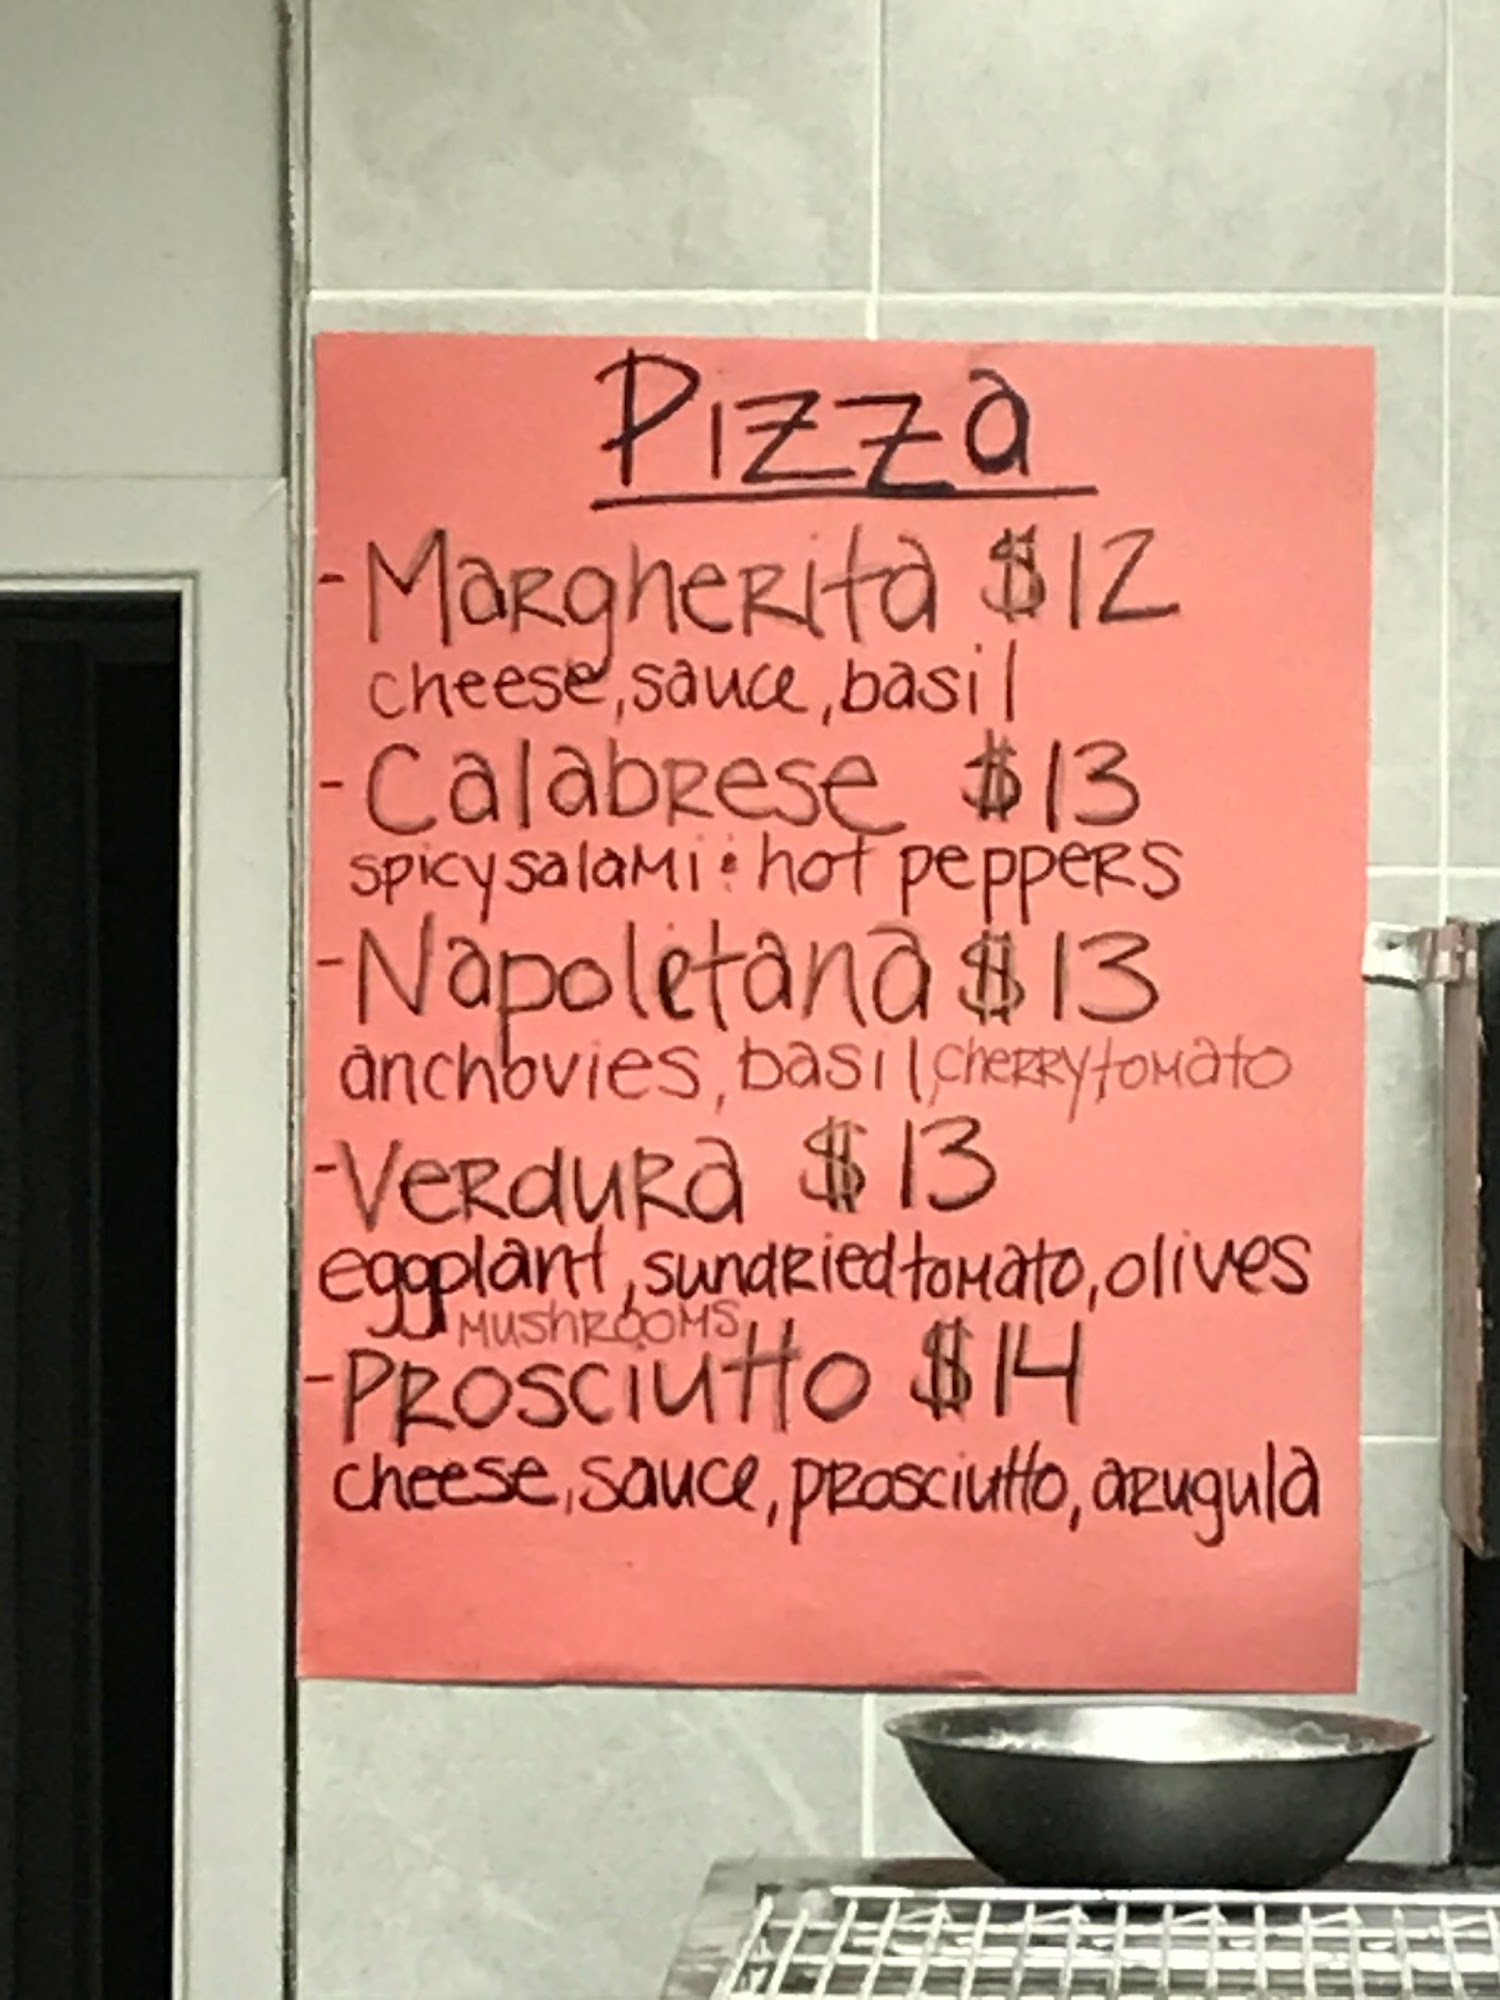 Pizza
- Margherita $12
cheese, sauce, basil
- Calabrese $13
spicy salami : hot peppers
- Napoletana $13
anchovies, basil, cherry tomato
- Verdura $13
eggplant, sundried tomato, olives
mushrooms
- Prosciutto $14
cheese, sauce, prosciutto, arugula